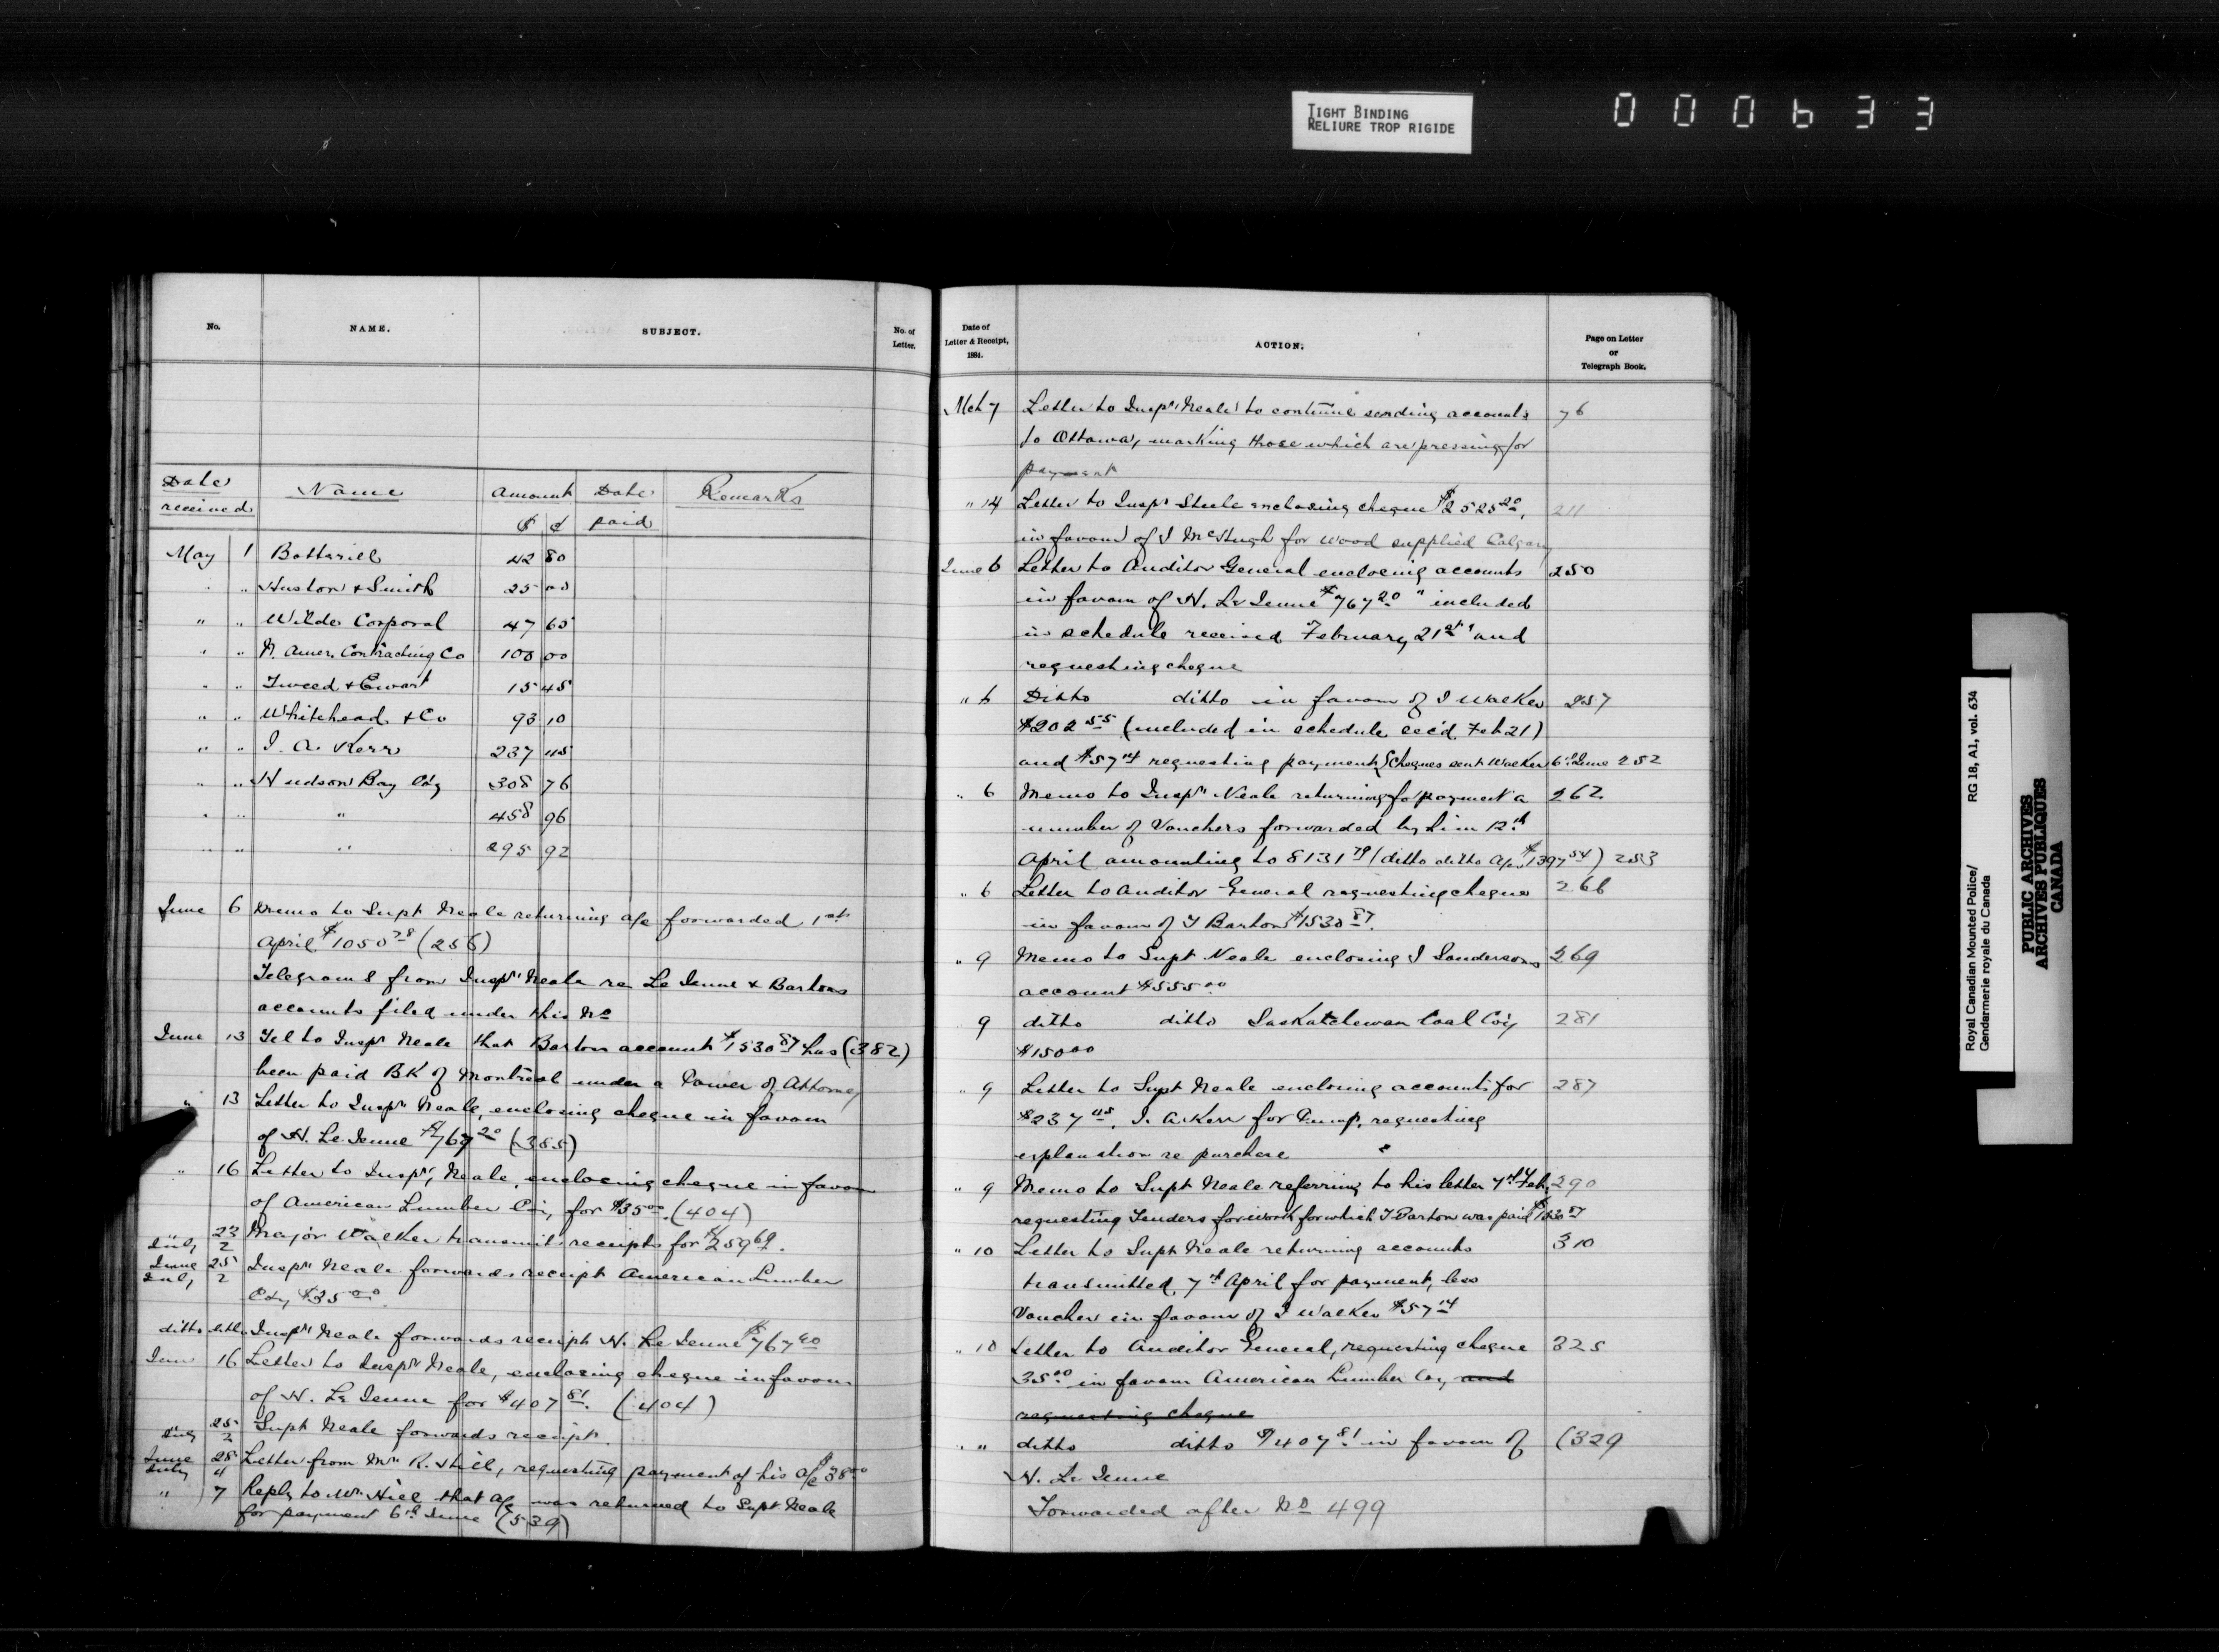 TIGHT BINDING
RELIURE TROP RIGIDE
000633
No.
NAME.
SUBJECT.
No. of
Letter.
Date
received
Name
Amount
$ ¢
Date
paid
Remarks
May 1 Bottarill 42 80
" Huston & Smith 25 00
" " Wilde Corporal 47 65
" " N. Amer. Contracting Co 100 00
" " Tweed & Ewart 15 45
" " Whitehead & Co 93 10
" " I. A. Kerr 237 45
" " Hudson Bay Coy 308 76
" " " 458 96
" " " 295 92
June 6 Memo to Supt Neale returning a/c forwarded 1st
April $1050 78 (256)
Telegrams from Inspr Neale re Le Jeune & Bartons
accounts filed under this No
June 13 Tel to Inspr Neale that Barton account $1530 87 has (382)
been paid BK of Montreal under a Power of Attorney
" 13 Letter to Inspr Neale, enclosing cheque in favour
of N. Le Jeune $767 20 (385)
" 16 Letter to Inspr, Neale, enclosing cheque in favour
of American Lumber Co, for $35 00. (404)
23
July 2 Major Walker transmits receipts for $259 69.
June 25
July 2 Inspr Neale forwards receipt American Lumber
Coy $35 00
ditto ditto Inspr Neale forwards receipt N. Le Jeune $767 20
June 16 Letter to Inspr Neale, enclosing cheque in favour
of N. Le Jeune for $407 81. (404)
25
July 2 Supt Neale forwards receipt.
June 28
July 4 Letter from Mr R. Hill, requesting payment of his a/c $38 00
" 7 Reply to Mr Hill that a/c was returned to Supt Neale
for payment 6th June (539)
Date of
Letter & Receipt,
1884.
ACTION.
Page on Letter
or
Telegraph Book.
Mch 7 Letter to Inspr Neale to continue sending accounts 76
to Ottawa, marking those which are pressing for
payment
" 14 Letter to Inspr Steele enclosing cheque $2525 20, 211
in favour of J McHugh for wood supplied Calgary
June 6 Letter to Auditor General enclosing accounts 250
in favour of N. Le Jeune $767 20 " included
in schedule received February 21st " and
requesting cheque
" 6 Ditto ditto in favour of J Walker 257
$202 55 (included in schedule rec'd Feb 21)
and $57 14 requesting payment (Cheques sent Walker 6th June 252
" 6 Memo to Inspr Neale returning for payment a 262
number of Vouchers forwarded by him 12th
April amounting to 8131 79 (ditto ditto Apr $1397 54) 253
" 6 Letter to Auditor General requesting cheque 266
in favour of T Barton $1530 87.
" 9 Memo to Supt Neale enclosing J Sandersons 269
account $555 00
9 ditto ditto Saskatchewan Coal Coy 281
$150 00
" 9 Letter to Supt Neale enclosing accounts for 287
$237 45, I. A Kerr for Pump, requesting
explanation re purchase
" 9 Memo to Supt Neale referring to his letter 7th Feb, 290
requesting Tenders for work for which T Barton was paid
" 10 Letter to Supt Neale returning accounts 310
transmitted, 7th April for payment, less
Voucher in favour of J Walker $57 14
" 10 Letter to Auditor General, requesting cheque 325
35 00 in favour American Lumber Coy and
requesting cheque
" " ditto ditto $407 81 in favour of (329
N. Le Jeune
Forwarded after No 499
Royal Canadian Mounted Police/ RG 18, A1, vol. 634
Gendarmerie royale du Canada
PUBLIC ARCHIVES
ARCHIVES PUBLIQUES
CANADA